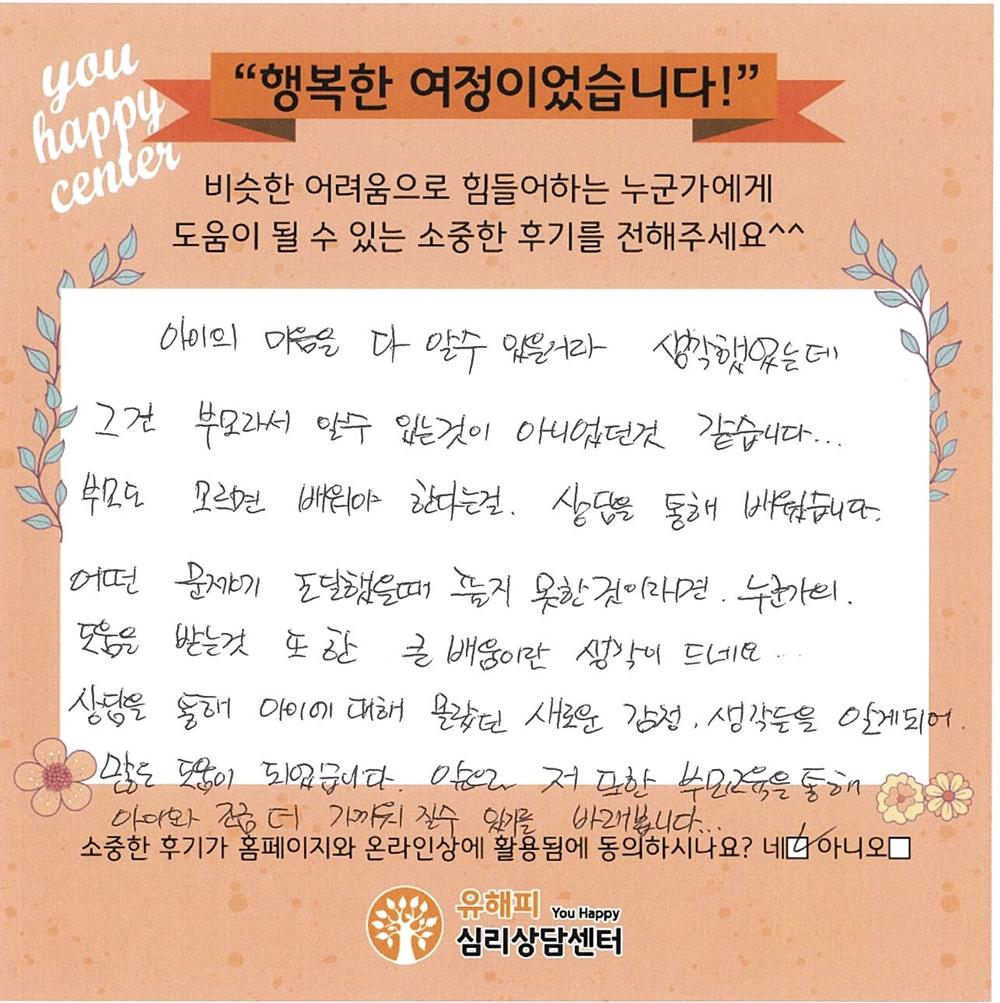 you
happy
center
“행복한 여정이었습니다!”
비슷한 어려움으로 힘들어하는 누군가에게
도움이 될 수 있는 소중한 후기를 전해주세요^^
아이의 마음을 다 알수 있을거라 생각했었는데
그건 부모라서 알수 있는것이 아니었던것 같습니다...
부모도 모르면 배워야 한다는걸. 상담을 통해 배웠습니다.
어떤 문제에 도달했을때 풀지 못한것이라면. 누군가의.
도움을 받는것 또 한 큰 배움이란 생각이 드네요...
상담을 통해 아이에 대해 몰랐던 새로운 감정, 생각들을 알게되어.
많은 도움이 되었습니다. 앞으로 저 또한 부모교육을 통해
아이와 조금 더 가까워 질수 있기를 바래봅니다...
소중한 후기가 홈페이지와 온라인상에 활용됨에 동의하시나요? 네☑ 아니오□
유해피 You Happy
심리상담센터